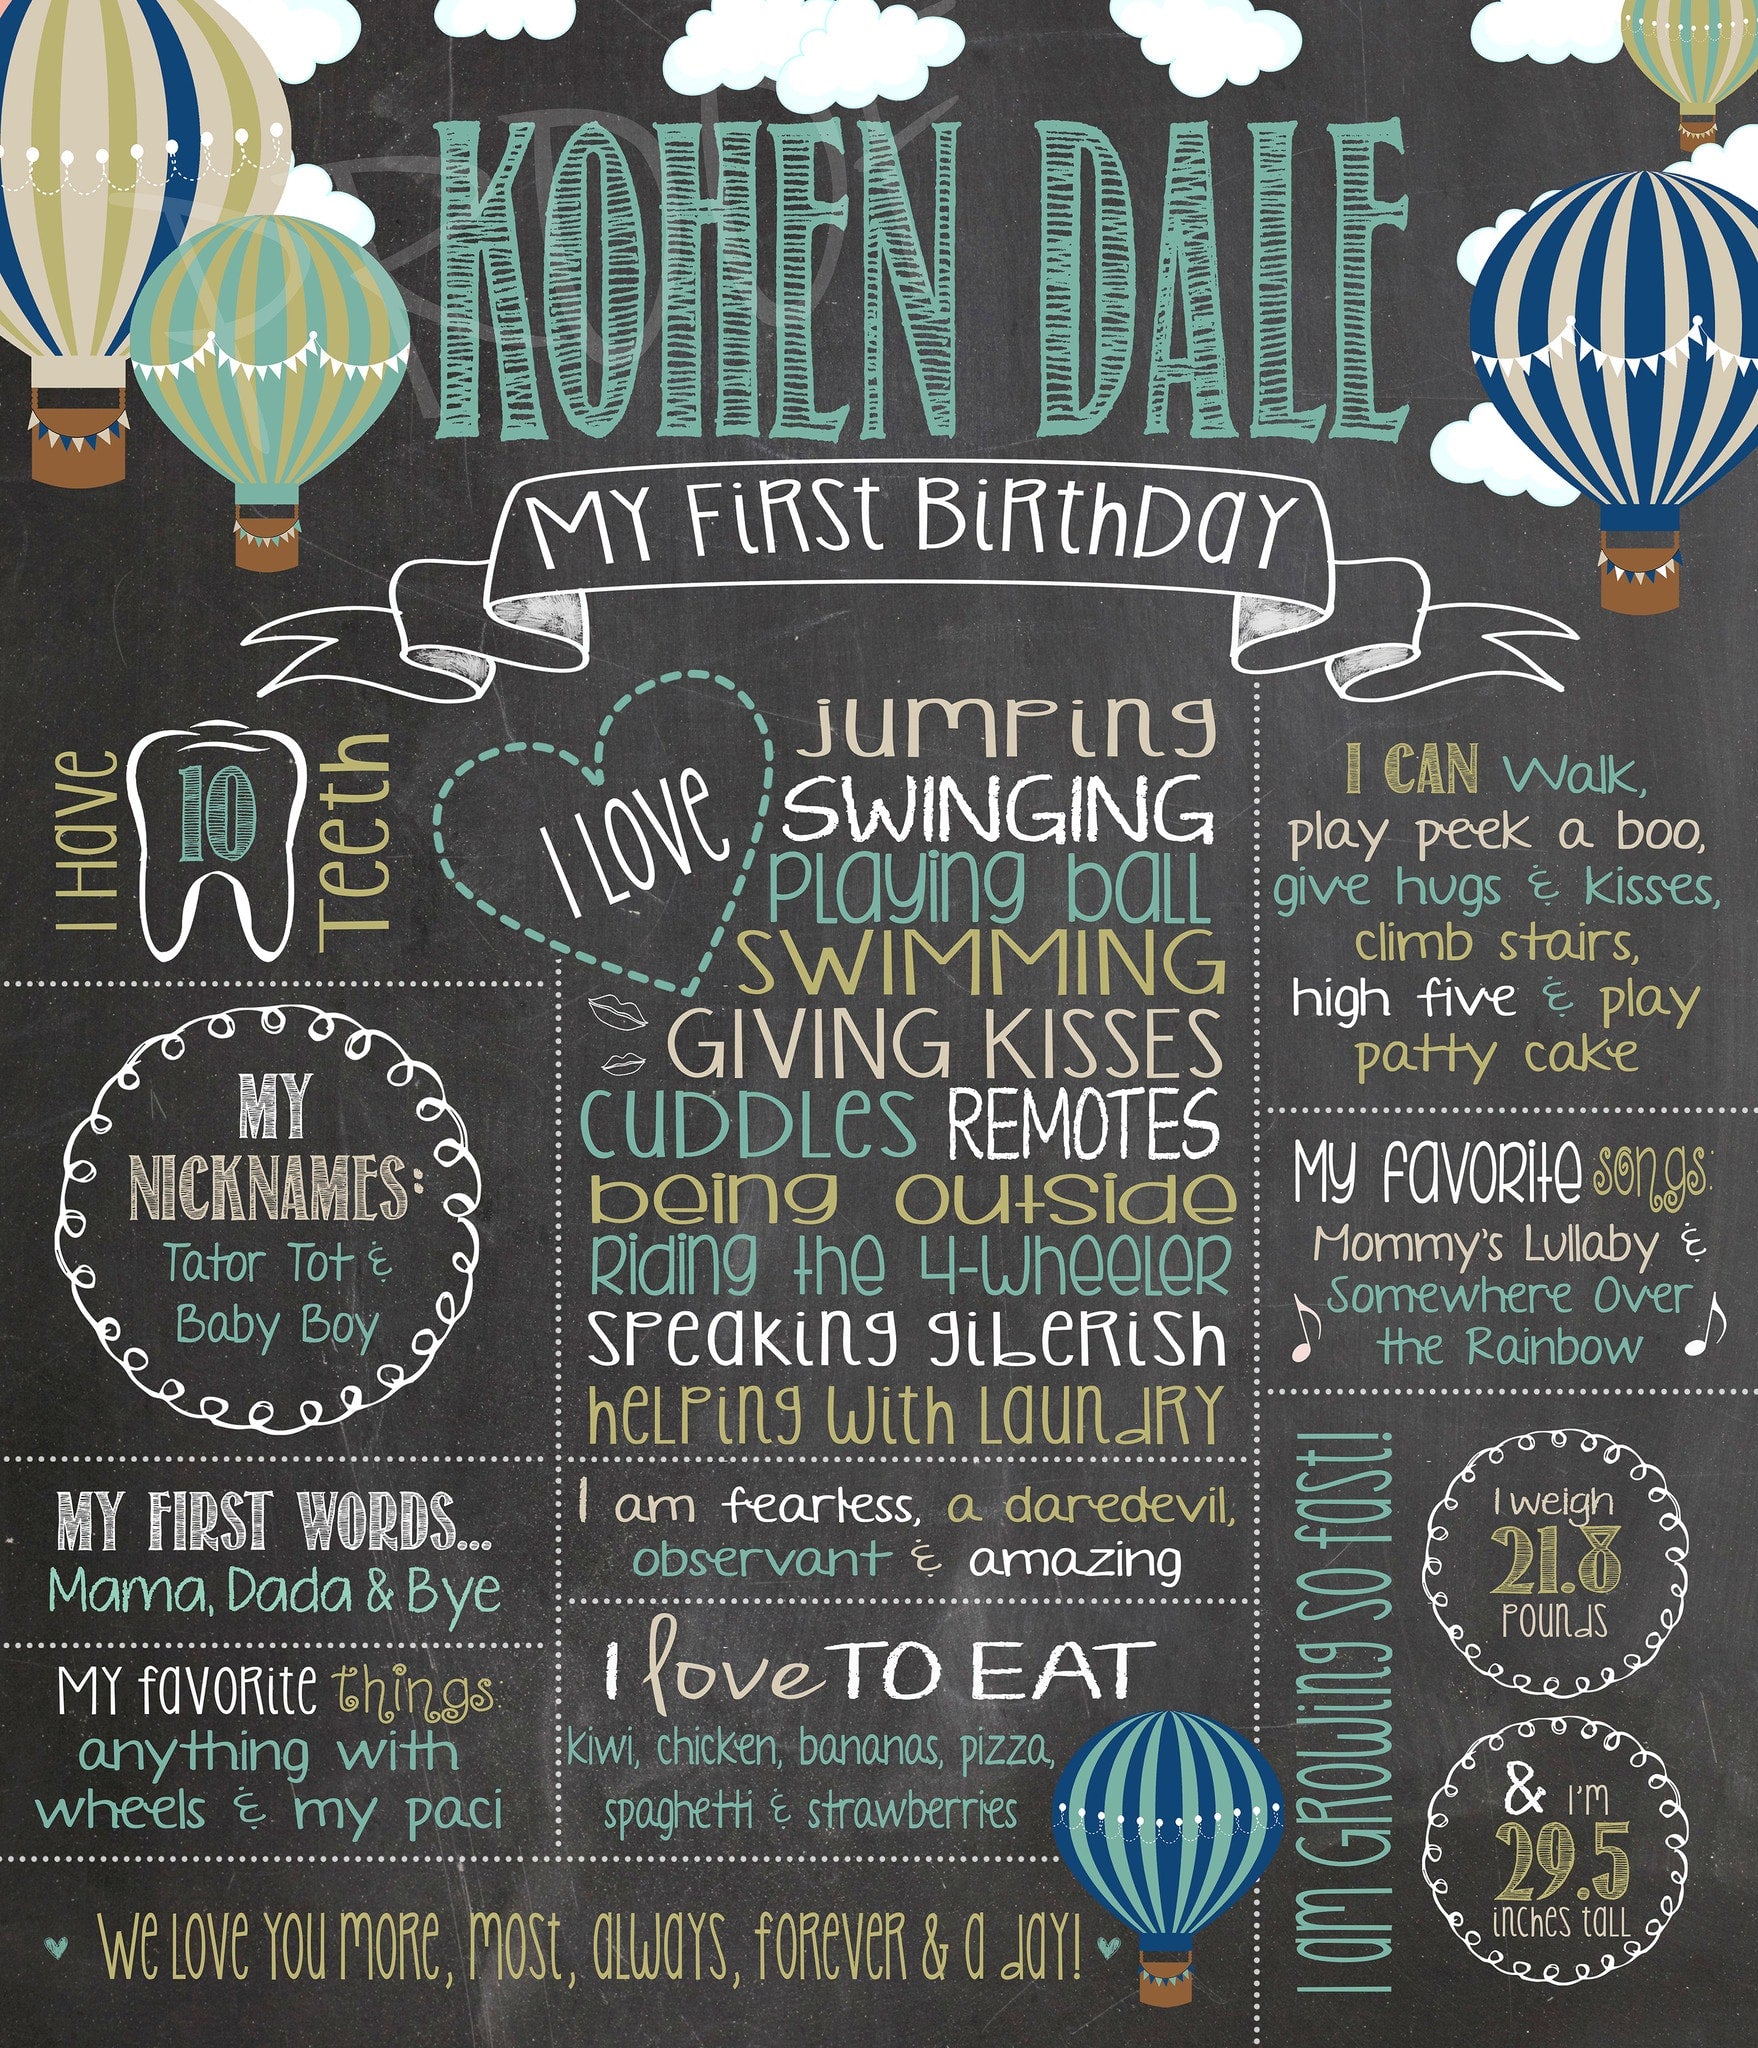 KOHEN DALE
MY FiRSt BiRthDaY
I Have
10
Teeth
I LOVe
jumping
SWINGING
PLaying ball
SWIMMING
GIVING KISSES
CUDDLes REMOTES
being outside
Riding the 4-wheeler
speaking giberish
helping with Laundry
I CAN Walk,
play peek a boo,
give hugs & kisses,
climb stairs,
high five & play
patty cake
MY NICKNAMES:
Tator Tot &
Baby Boy
My favorite songs:
Mommy's Lullaby &
Somewhere Over
the Rainbow
MY FIRST WORDS...
Mama, Dada & Bye
I am fearless, a daredevil,
observant & amazing
My favorite things:
anything with
wheels & my paci
I love TO EAT
kiwi, chicken, bananas, pizza,
spaghetti & strawberries
I am GROWing SO fast!
I weigh
21.8
POUNDS
& I'M
29.5
inches tall
We LOVE YOU MORE, MOST, always, forever & a day!